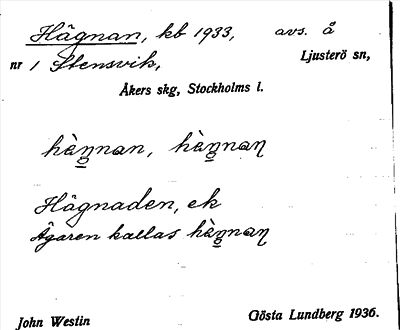 Hägnan, kb 1933, avs. å
nr 1 Stensvik, Ljusterö sn,
Åkers skg, Stockholms l.
hæ̀ŋ̲nan, hæ̀ŋ̲naɳ
Hägnaden, ek
Ägaren kallas hæ̀ŋ̲naɳ
John Westin Gösta Lundberg 1936.